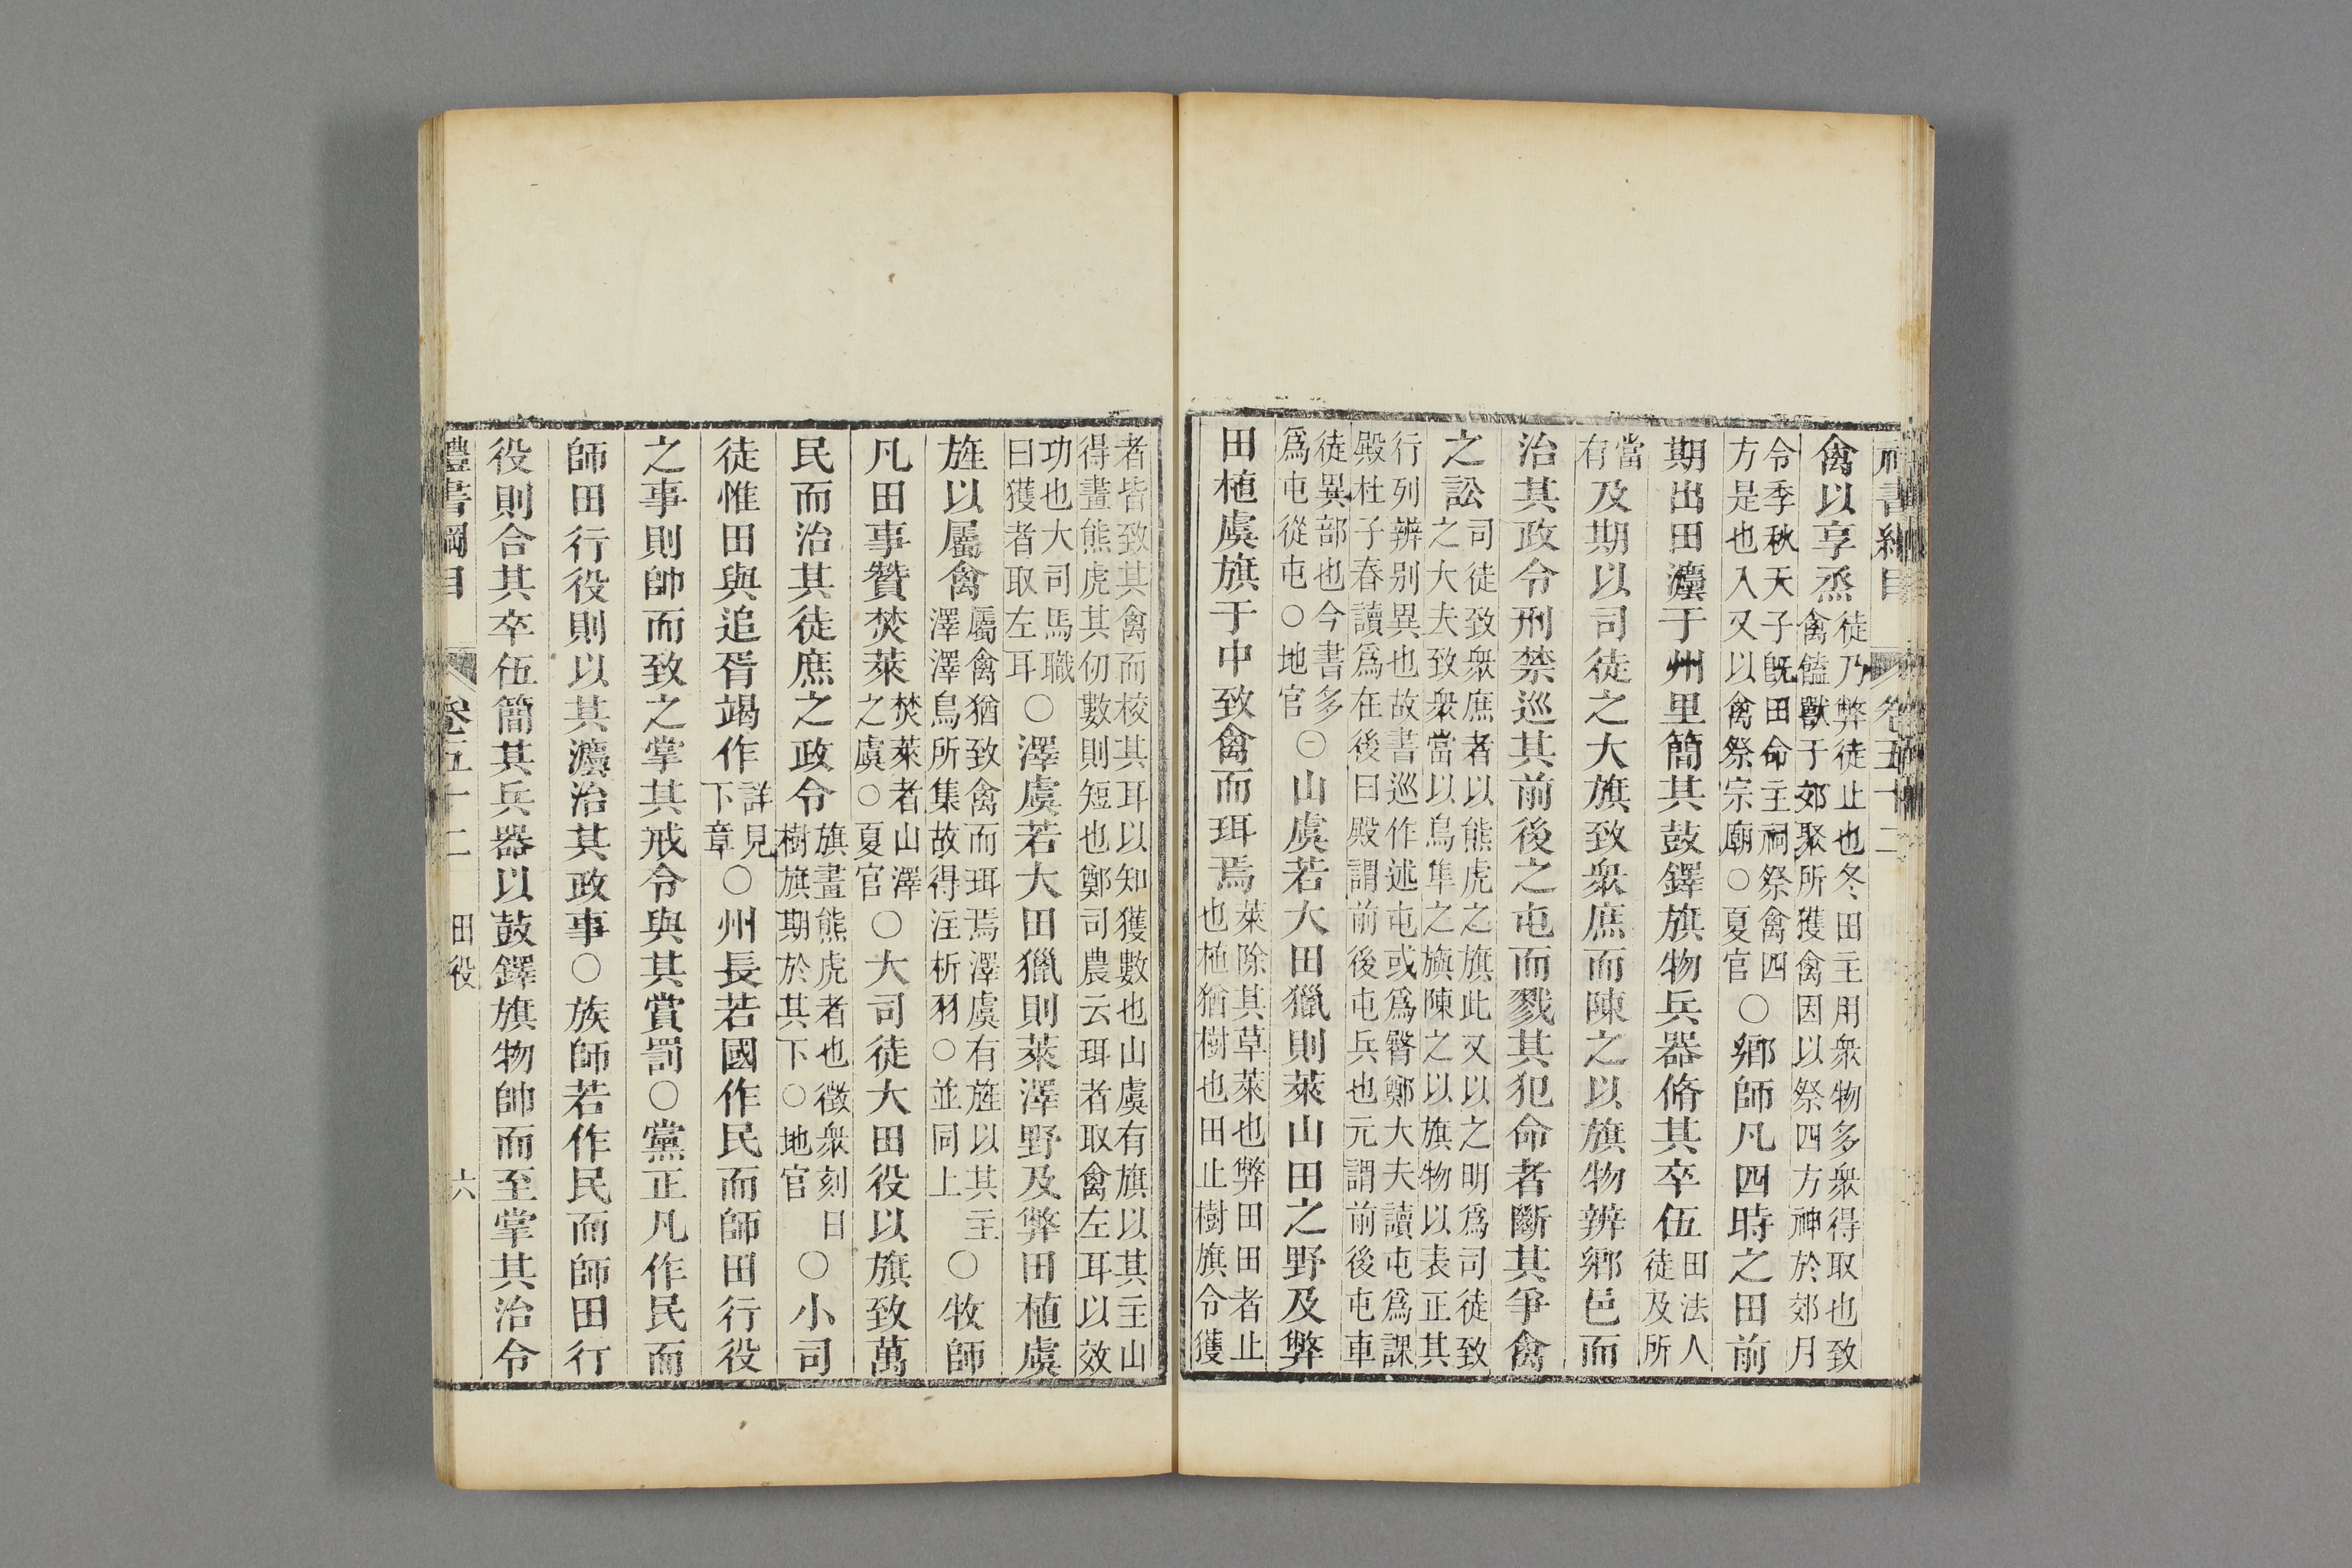 禮書綱目 卷五十二
禽以享烝徒乃弊徒止也冬田主用衆物多衆得取也致禽饁獸于郊聚所獲禽因以祭四方神於郊月
令季秋天子既田命主祠祭禽四方是也入又以禽祭宗廟○夏官○鄉師凡四時之田前
期出田灋于州里簡其鼓鐸旗物兵器脩其卒伍田法人徒及所
當有及期以司徒之大旗致衆庶而陳之以旗物辨鄉邑而
治其政令刑禁巡其前後之屯而戮其犯命者斷其爭禽
之訟司徒致衆庶者以熊虎之旗此又以之明爲司徒致之大夫致衆當以鳥隼之旟陳之以旗物以表正其
行列辨别異也故書巡作述屯或爲臀鄭大夫讀屯爲課殿杜子春讀爲在後曰殿謂前後屯兵也元謂前後屯車
徒異部也今書多爲屯從屯○地官○山虞若大田獵則萊山田之野及弊
田植虞旗于中致禽而珥焉萊除其草萊也弊田田者止也植猶樹也田止樹旗令獲
者皆致其禽而校其耳以知獲數也山虞有旗以其主山得畫熊虎其仞數則短也鄭司農云珥者取禽左耳以效
功也大司馬職曰獲者取左耳○澤虞若大田獵則萊澤野及弊田植虞
旌以屬禽屬禽猶致禽而珥焉澤虞有旌以其主澤澤鳥所集故得注析羽○並同上○牧師
凡田事贊焚萊焚萊者山澤之虞○夏官○大司徒大田役以旗致萬
民而治其徒庶之政令旗畫熊虎者也徵衆刻日樹旗期於其下○地官○小司
徒惟田與追胥竭作詳見下章○州長若國作民而師田行役
之事則帥而致之掌其戒令與其賞罰○黨正凡作民而
師田行役則以其灋治其政事○族師若作民而師田行
役則合其卒伍簡其兵器以鼓鐸旗物帥而至掌其治令
禮書綱目 卷五十二 田役 六